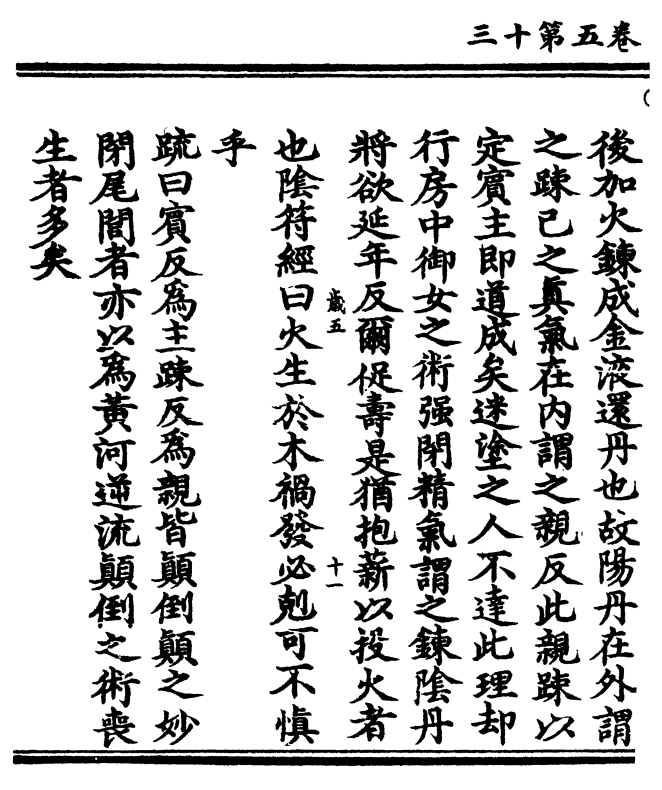 三十第五卷
後加火鍊成金液還丹也故陽丹在外謂
之踈己之真氣在內謂之親反此親踈以
定賓主即道成矣迷塗之人不達此理却
行房中御女之術强閉精氣謂之鍊陰丹
將欲延年反爾促壽是猶抱薪以投火者
歲五
十一
也陰符經曰火生於木禍發必剋可不慎
乎
䟽曰賓反為主踈反為親皆顛倒顛之妙
閉尾閭者亦以為黃河逆流顛倒之術喪
生者多矣